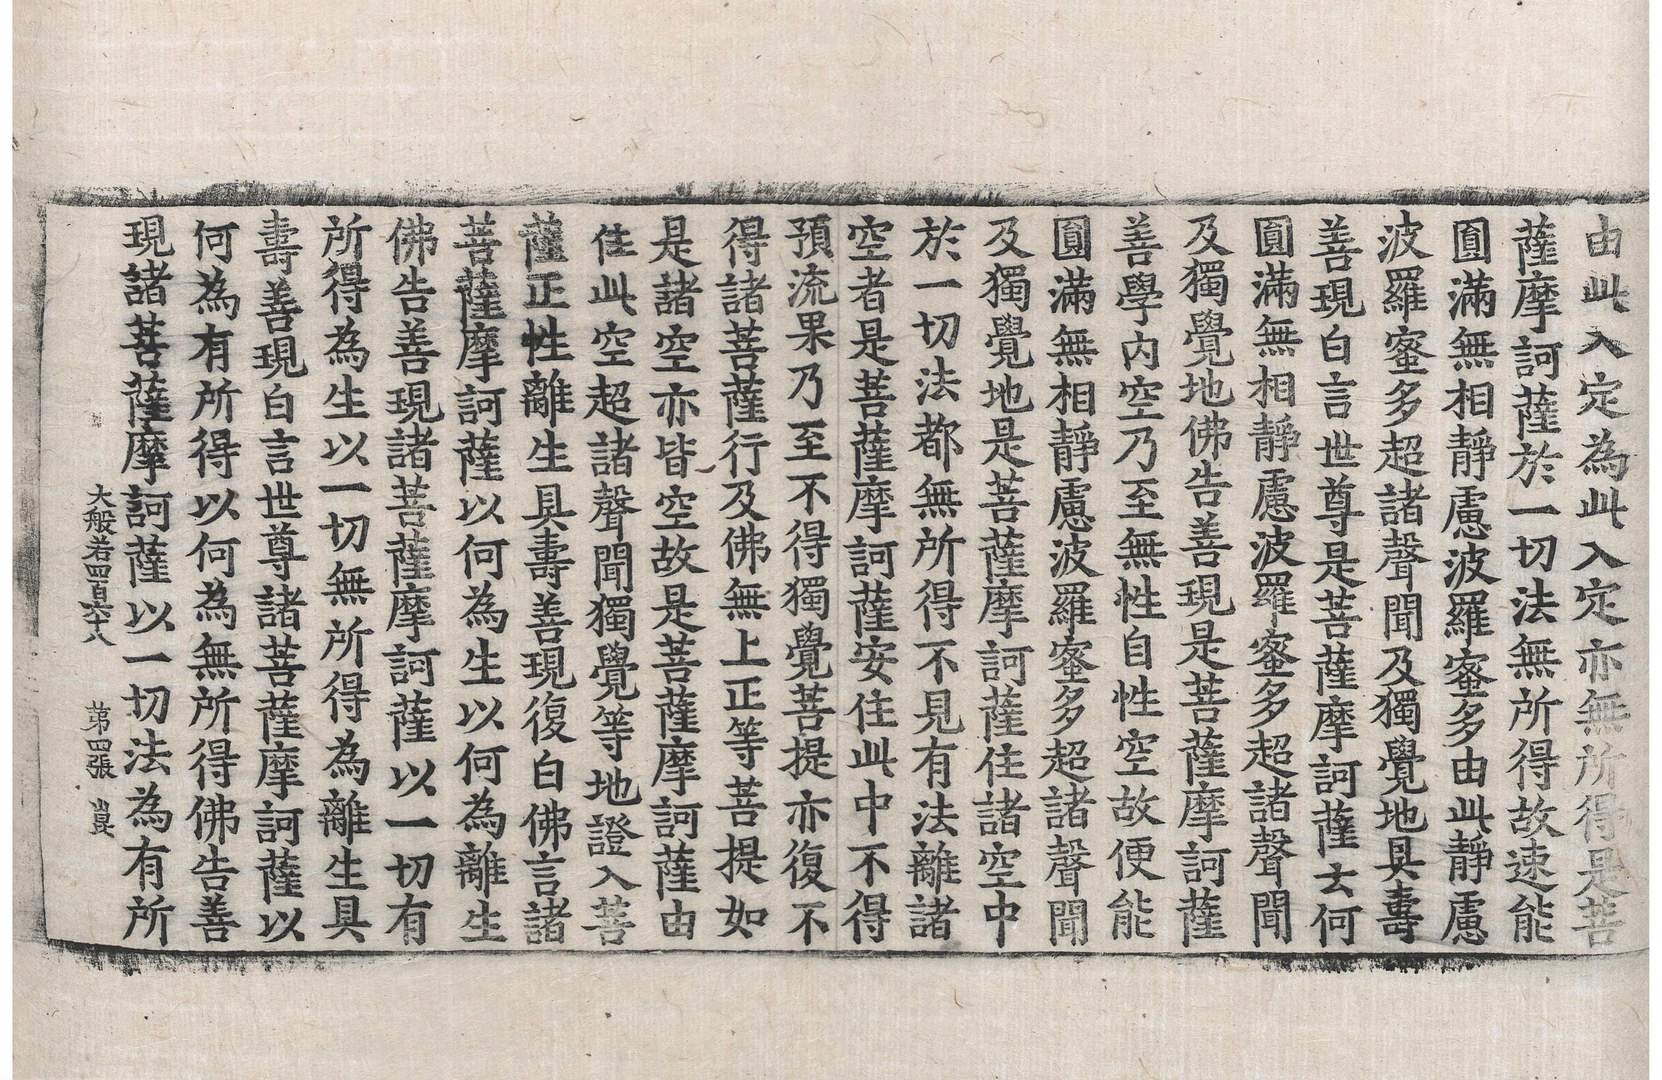 由此入定為此入定亦無所得是菩
薩摩訶薩於一切法無所得故速能
圓滿無相靜慮波羅蜜多由此靜慮
波羅蜜多超諸聲聞及獨覺地具壽
善現白言世尊是菩薩摩訶薩云何
圓滿無相靜慮波羅蜜多超諸聲聞
及獨覺地佛告善現是菩薩摩訶薩
善學內空乃至無性自性空故便能
圓滿無相靜慮波羅蜜多超諸聲聞
及獨覺地是菩薩摩訶薩住諸空中
於一切法都無所得不見有法離諸
空者是菩薩摩訶薩安住此中不得
預流果乃至不得獨覺菩提亦復不
得諸菩薩行及佛無上正等菩提如
是諸空亦皆空故是菩薩摩訶薩由
住此空超諸聲聞獨覺等地證入菩
薩正性離生具壽善現復白佛言諸
菩薩摩訶薩以何為生以何為離生
佛告善現諸菩薩摩訶薩以一切有
所得為生以一切無所得為離生具
壽善現白言世尊諸菩薩摩訶薩以
何為有所得以何為無所得佛告善
現諸菩薩摩訶薩以一切法為有所
大般若四百六十八 第四張 崑